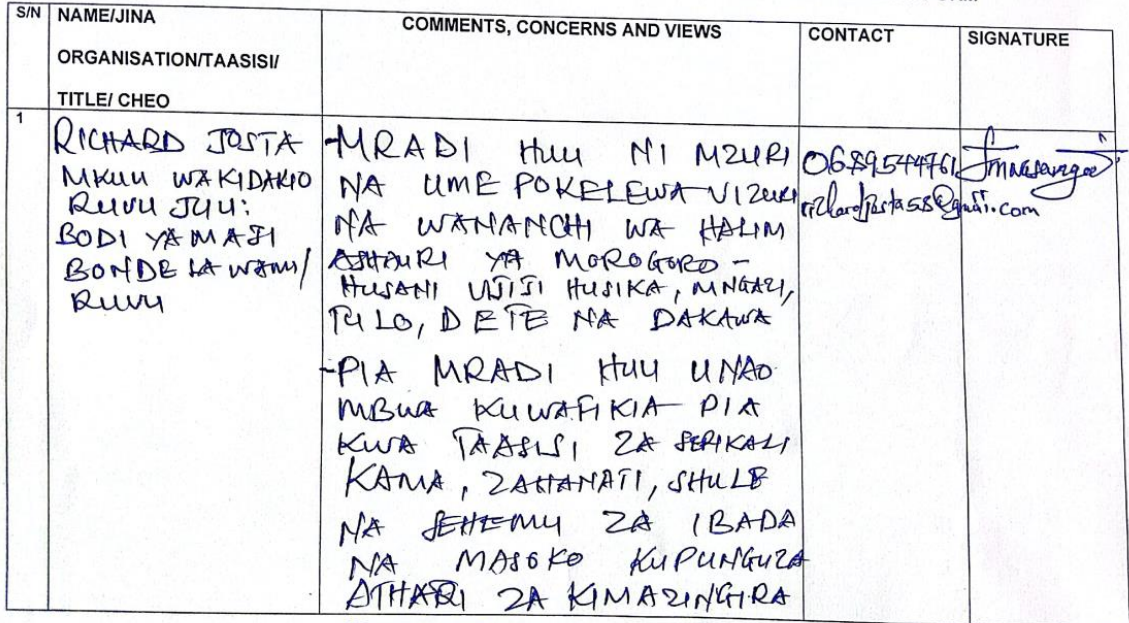 S/N
NAME/JINA
ORGANISATION/TAASISI/
TITLE/ CHEO
COMMENTS, CONCERNS AND VIEWS
CONTACT
SIGNATURE
1
RICHARD JOSTA
MKUU WA KIDAKIO
RUVU JUU:
BODI YA MAJI
BONDE LA WAMI/
RUVU
-MRADI HUU NI MZURI
NA UME POKELEWA VIZURI
NA WANANCHI WA HALIM
ASHAURI YA MOROGORO -
HUSANI VIJIJI HUSIKA, MNGAZI,
TULO, DETE NA DAKAWA
-PIA MRADI HUU UNAO
MBWA KUWAFIKIA PIA
KWA TAASISI ZA SERIKALI
KAMA, ZAHANATI, SHULE
NA SEHEMU ZA IBADA
NA MASOKO KUPUNGUZA
ATHARI ZA KIMAZINGIRA
0689544761
richardjosta58@gmail.com